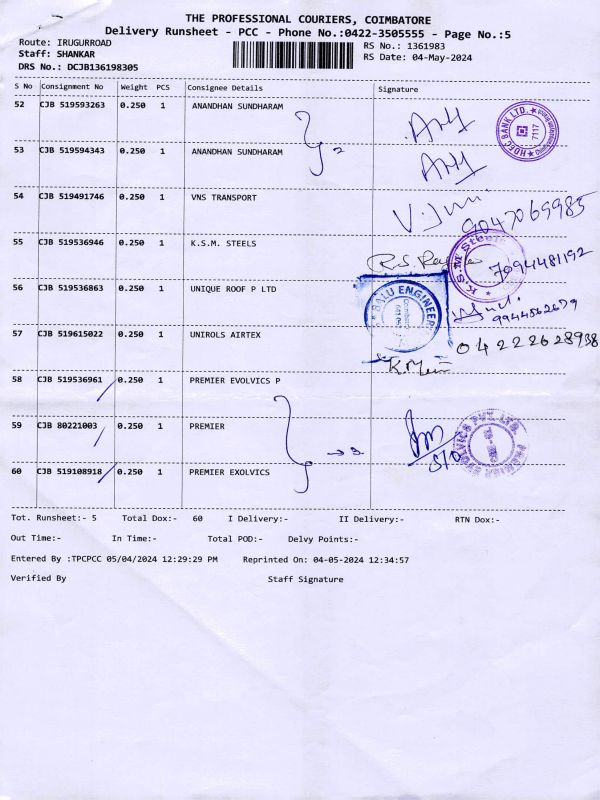 THE PROFESSIONAL COURIERS, COIMBATORE
Delivery Runsheet - PCC - Phone No.:0422-3505555 - Page No.:5
Route: IRUGURROAD RS No.: 1361983
Staff: SHANKAR RS Date: 04-May-2024
DRS No.: DCJB136198305
S No Consignment No Weight PCS Consignee Details Signature
52 CJB 519593263 0.250 1 ANANDHAN SUNDHARAM
HDFC BANK LTD. 7117
2
53 CJB 519594343 0.250 1 ANANDHAN SUNDHARAM
54 CJB 519491746 0.250 1 VNS TRANSPORT
9047069985
55 CJB 519536946 0.250 1 K.S.M. STEELS
K.S.M Steels
7094481192
56 CJB 519536863 0.250 1 UNIQUE ROOF P LTD
BALU ENGINEER
9944562679
57 CJB 519615022 0.250 1 UNIROLS AIRTEX
04222628938
58 CJB 519536961 0.250 1 PREMIER EVOLVICS P
59 CJB 80221003 0.250 1 PREMIER
60 CJB 519108918 0.250 1 PREMIER EXOLVICS
Tot. Runsheet:- 5 Total Dox:- 60 I Delivery:- II Delivery:- RTN Dox:-
Out Time:- In Time:- Total POD:- Delvy Points:-
Entered By :TPCPCC 05/04/2024 12:29:29 PM Reprinted On: 04-05-2024 12:34:57
Verified By Staff Signature